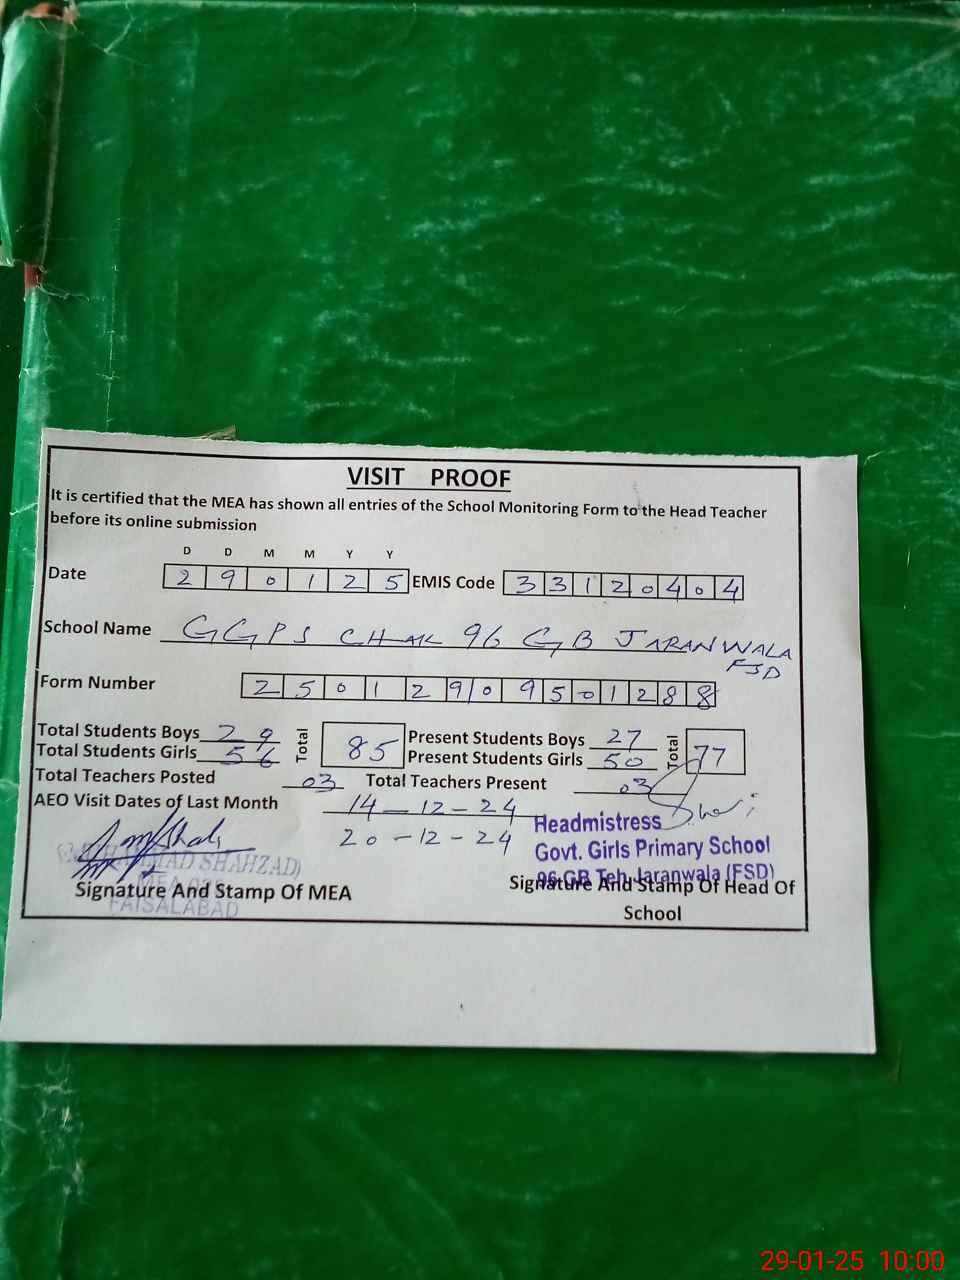 VISIT PROOF
It is certified that the MEA has shown all entries of the School Monitoring Form to the Head Teacher
before its online submission
D D M M Y Y
Date 2 9 0 1 2 5 EMIS Code 3 3 1 2 0 4 0 4
School Name GGPS CHAK 96 GB JARANWALA
FSD
Form Number 2 5 0 1 2 9 0 9 5 0 1 2 8 8
Total Students Boys 29 Total 85 Present Students Boys 27 Total 77
Total Students Girls 56 Present Students Girls 50
Total Teachers Posted 03 Total Teachers Present 03
AEO Visit Dates of Last Month 14-12-24
20-12-24
Headmistress
Govt. Girls Primary School
96 GB Teh Jaranwala (FSD)
SHAHZAD)
MEA
FAISALABAD
Signature And Stamp Of MEA
Signature And Stamp Of Head Of
School
29-01-25 10:00